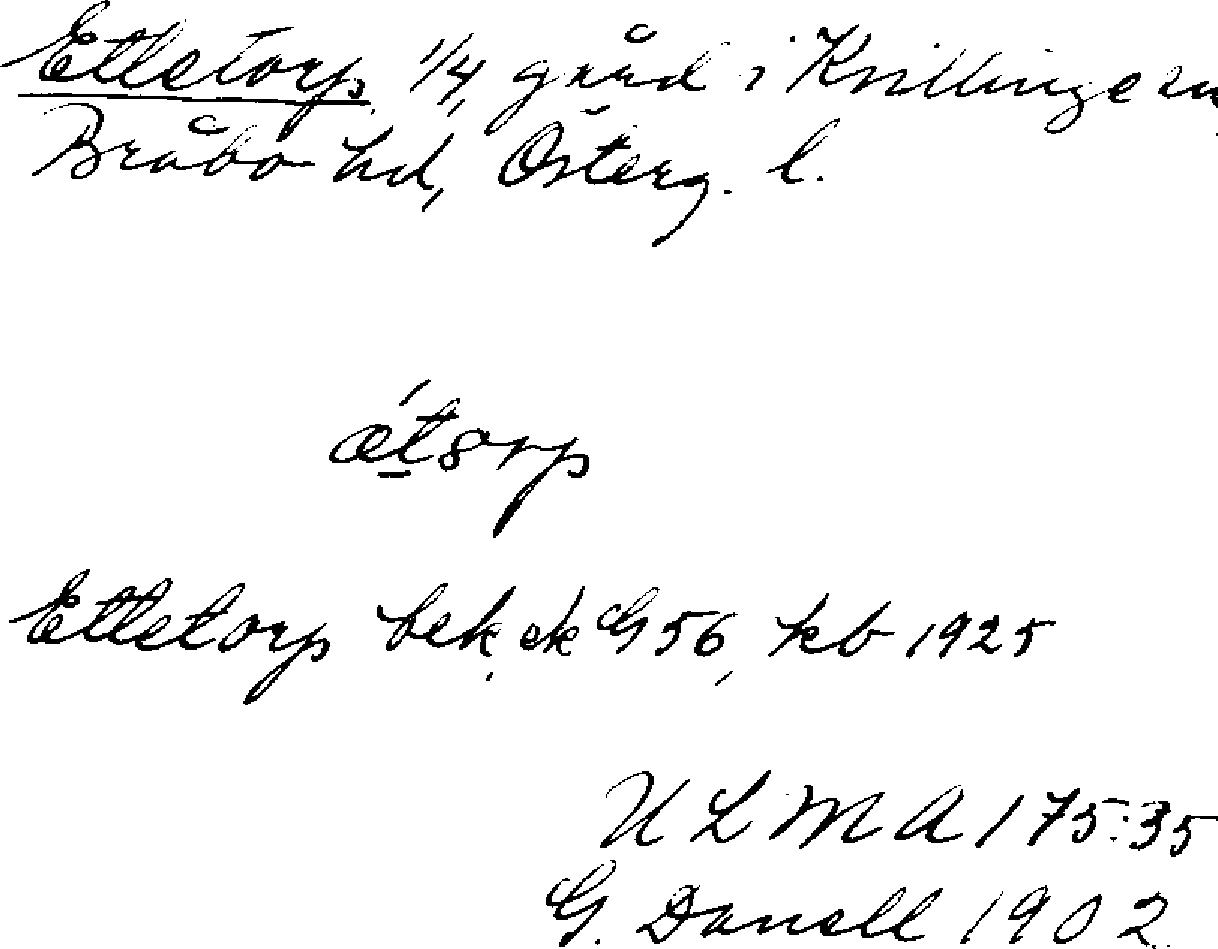 Ettetorp 1/4 gård i Kvillinge sn,
Bråbo hd, Österg. l.
Ettetorp bek, ek G 56, kb 1925
ULMA 175:35
G. Danell 1902